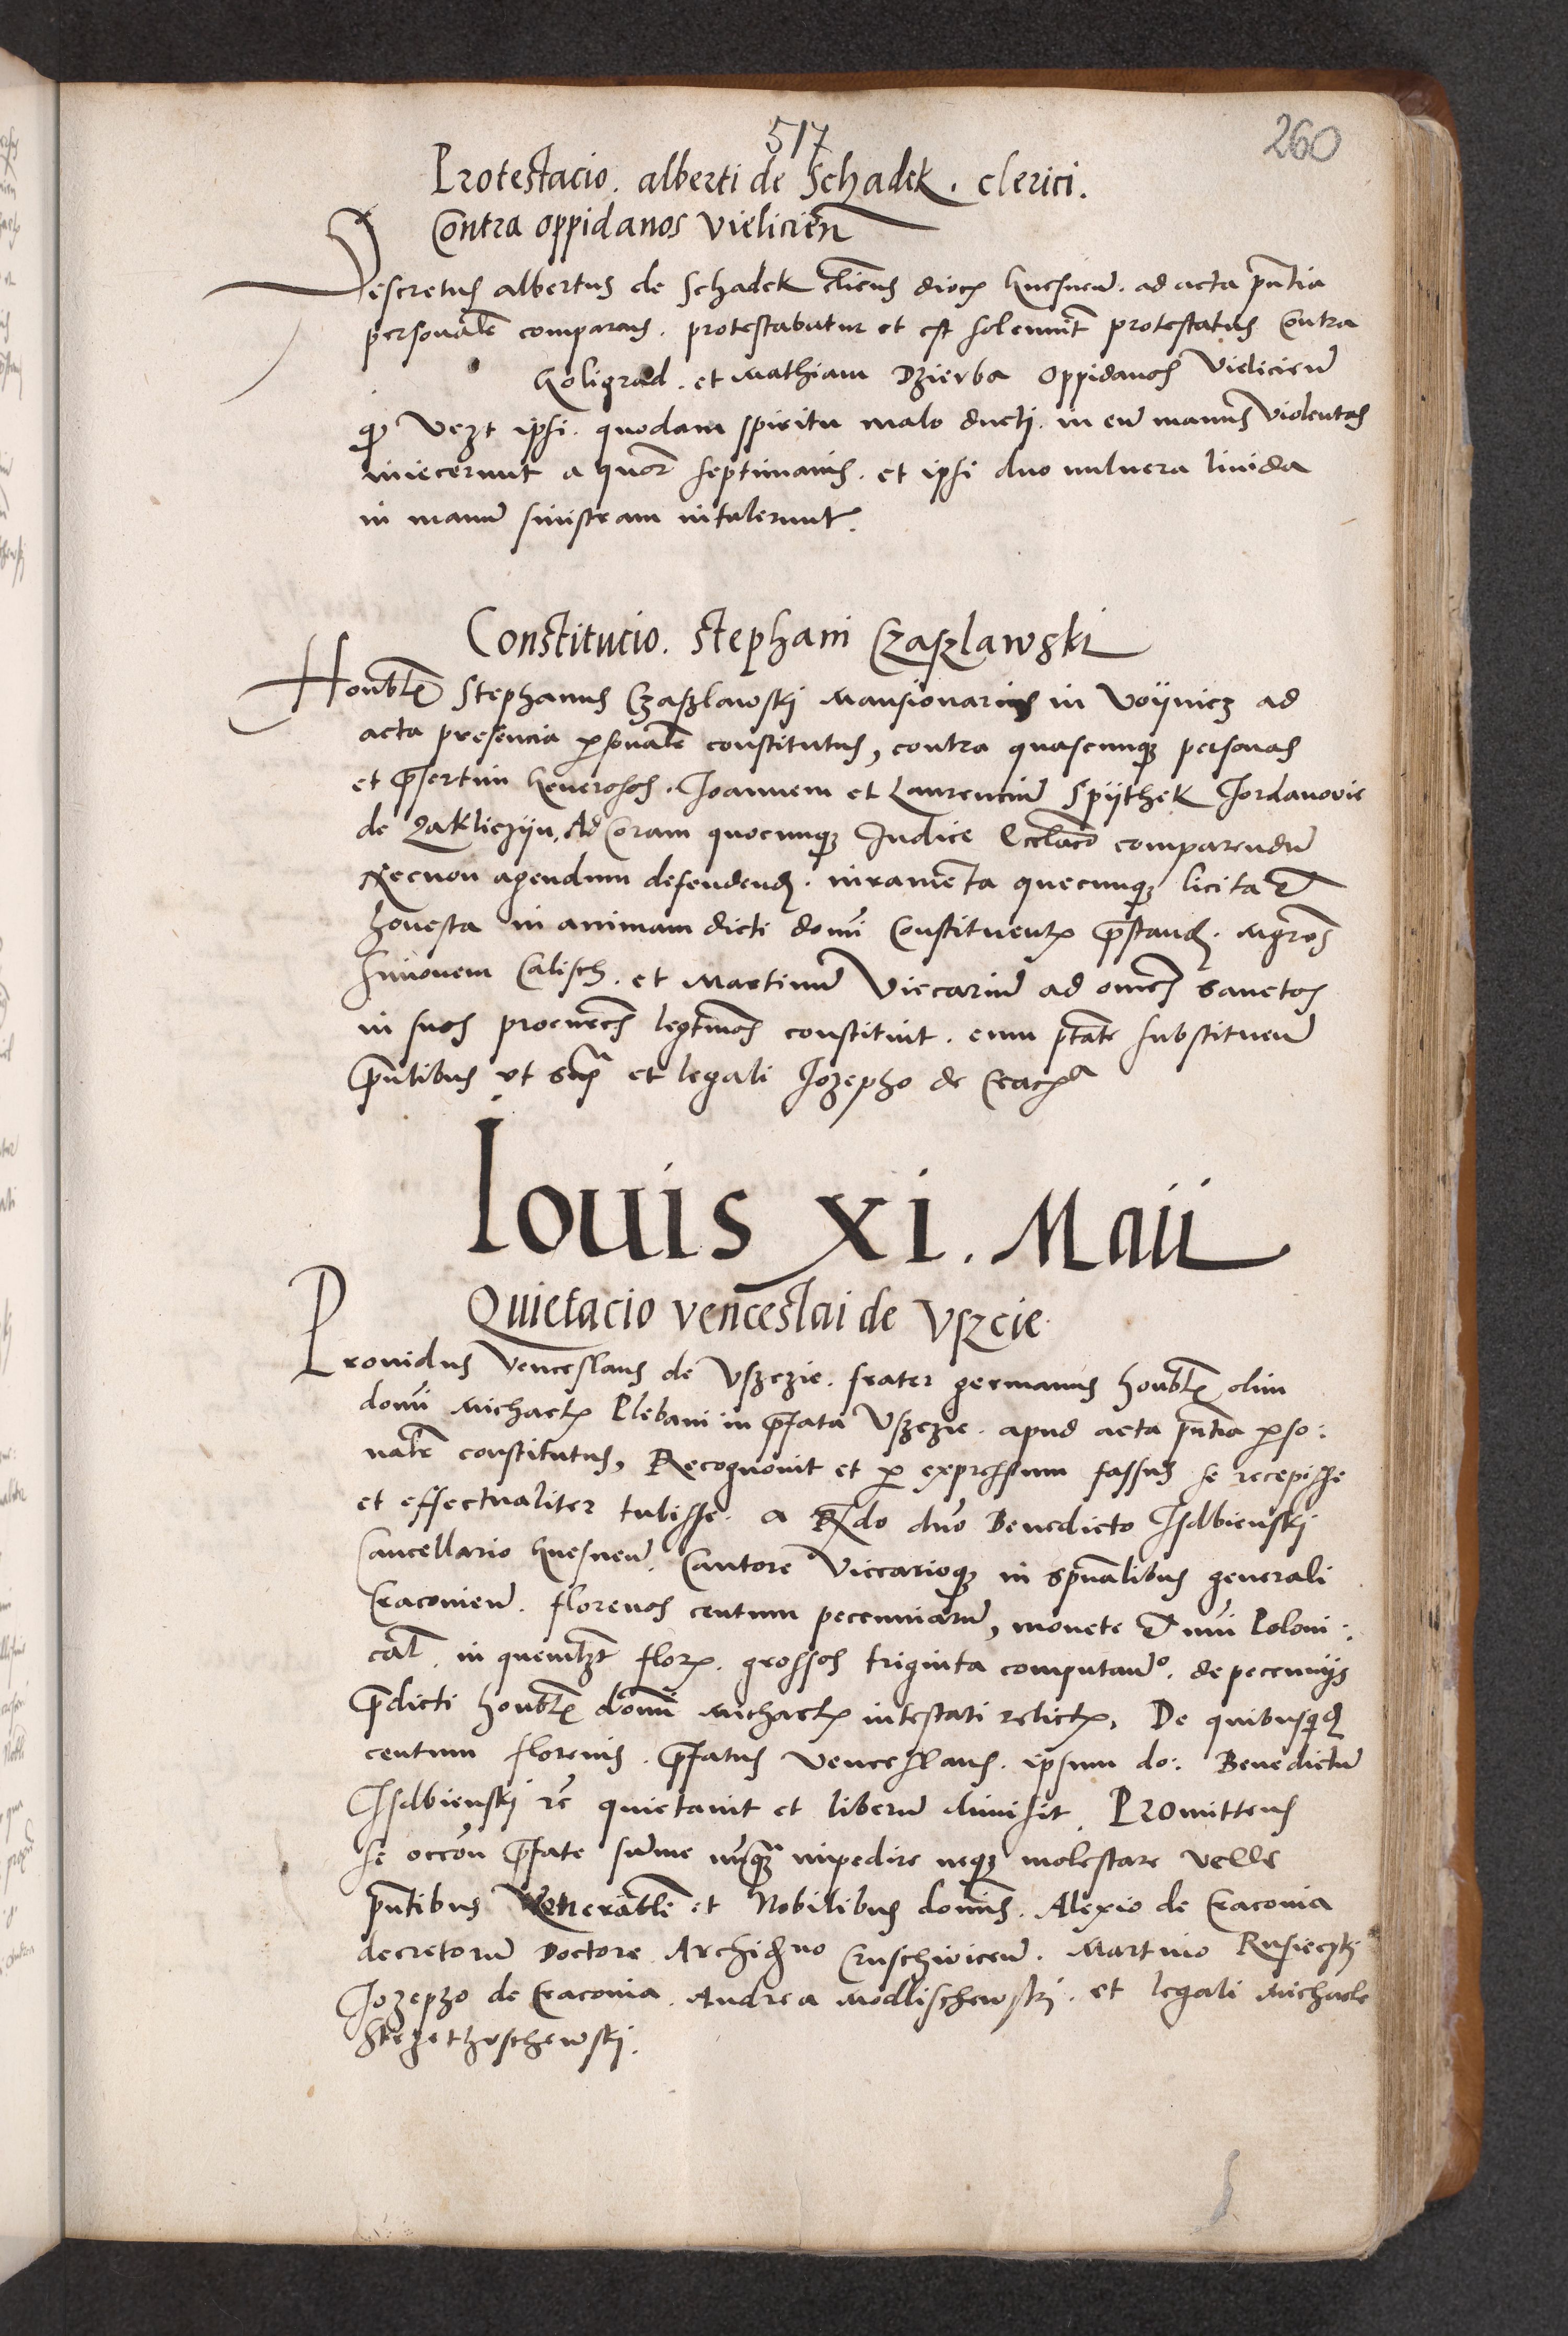 517
260
Protestacio. alberti de Schadek. clerici.
Contra oppidanos Vielicien̄
Discretus albertus de Schadek cl̄icus dioc̄ Gnesnen̄. ad acta pn̄tia
personalr̄ comparens. protestabatur et est solennit̄ protestatus Contra
Goligrad. et Mathiam Dzierba Oppidanos Vielicien̄
ipsi. quodam spiritu malo ducti. in eu̅ manus violentas
iniecerunt a quor̄ septimanis. et ipsi duo vulnera livida
in manu̅ sinistram intulerunt.
Constitucio. Stephani Czaszlawski
Honoblis Stephanus Czaszlawskj Mansionarius in Voÿnicz ad
acta presencia ꝑsonalr̄ constitutus, contra quascunqꝫ personas
et p̄sertim Generosos. Joannem et Laurenciu̅ Spÿthek Jordanovic
de Zakliczÿn. Ad Coram quocunqꝫ Judice Ecclaco comparendu̅
Necnon agendum defendend̄. iuramenta quecunqꝫ licita et
honesta in animam dicti domi̅ Constituent̄ p̄stand̄. Mgros
Simonem Calisch. et Martinu̅ Viccariu̅ ad om̄es sanctos
in suos procur̄es legtimos constituit. cum ptāte substituen̄
Pn̄tibus vt sup̄ᵃ et legali Jozepho de Crac̄ᵃ
Iouis XI. Maii
Quietacio venceslai de Vszcie
Prouidus Venceslaus de Vszczie. frater germanus honoblis olim
domi̅ Michael̄ Plebani in p̄fata Vszczie. apud acta pn̄tia ꝑso:
nalr̄ constitutus, Recognouit et ꝑ expressum fassus se recepisse
et effectualiter tulisse. a Rdo dn̄o Benedicto Isdbienskj
Cancellario Gnesnen̄. Cantore Viccarioqꝫ in spūalibus generali
Cracouien̄. florenos centum pecuniaru̅, monete et nu̅i Poloni:
cal̄. in quemlꝫt flor̄. grossos triginta computan̄º. de pecunijs
p̄dicti honoblis domi̅ Michael̄ intestati relict̄, De quibusquid̄
centum florenis. p̄fatus Venceslaus. ipsum do: Benedictu̅
Isdbienskj r̄e quietauit et liberu̅ dimisit. Promittens
se occo̅n p̄fate su̅me nu̅qꝫ impedire neqꝫ molestare velle
pn̄tibus Venerabl̄e et Nobilibus domi̅s. Alexio de Cracouia
decretoru̅ Doctore Archid̄no Cruschvicen̄. Martino Rusieczkj
Jozepho de Cracouia. Andrea Modlischewskj. et legali Michaele